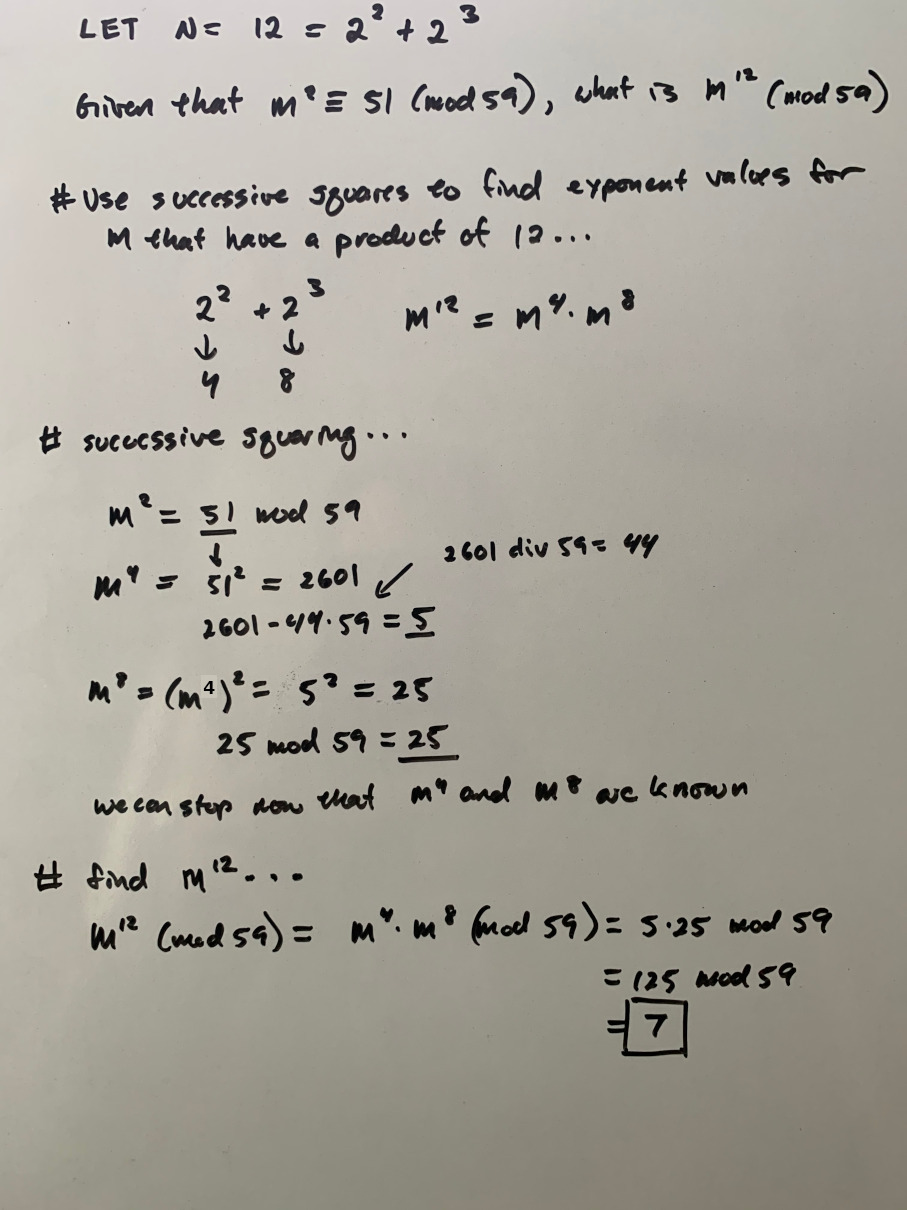 LET N = 12 = 2² + 2³
Given that m² ≡ 51 (mod 59), what is m¹² (mod 59)
# Use successive squares to find exponent values for
M that have a product of 12...
2² + 2³ m¹² = m⁴ · m⁸
↓ ↓
4 8
# successive squaring...
m² = 51 mod 59
↓
m⁴ = 51² = 2601 ↙ 2601 div 59 = 44
2601 - 44 · 59 = 5
m⁸ = (m⁴)² = 5² = 25
25 mod 59 = 25
we can stop now that m⁴ and m⁸ are known
# find m¹²...
m¹² (mod 59) = m⁴ · m⁸ (mod 59) = 5·25 mod 59
= 125 mod 59
= 7